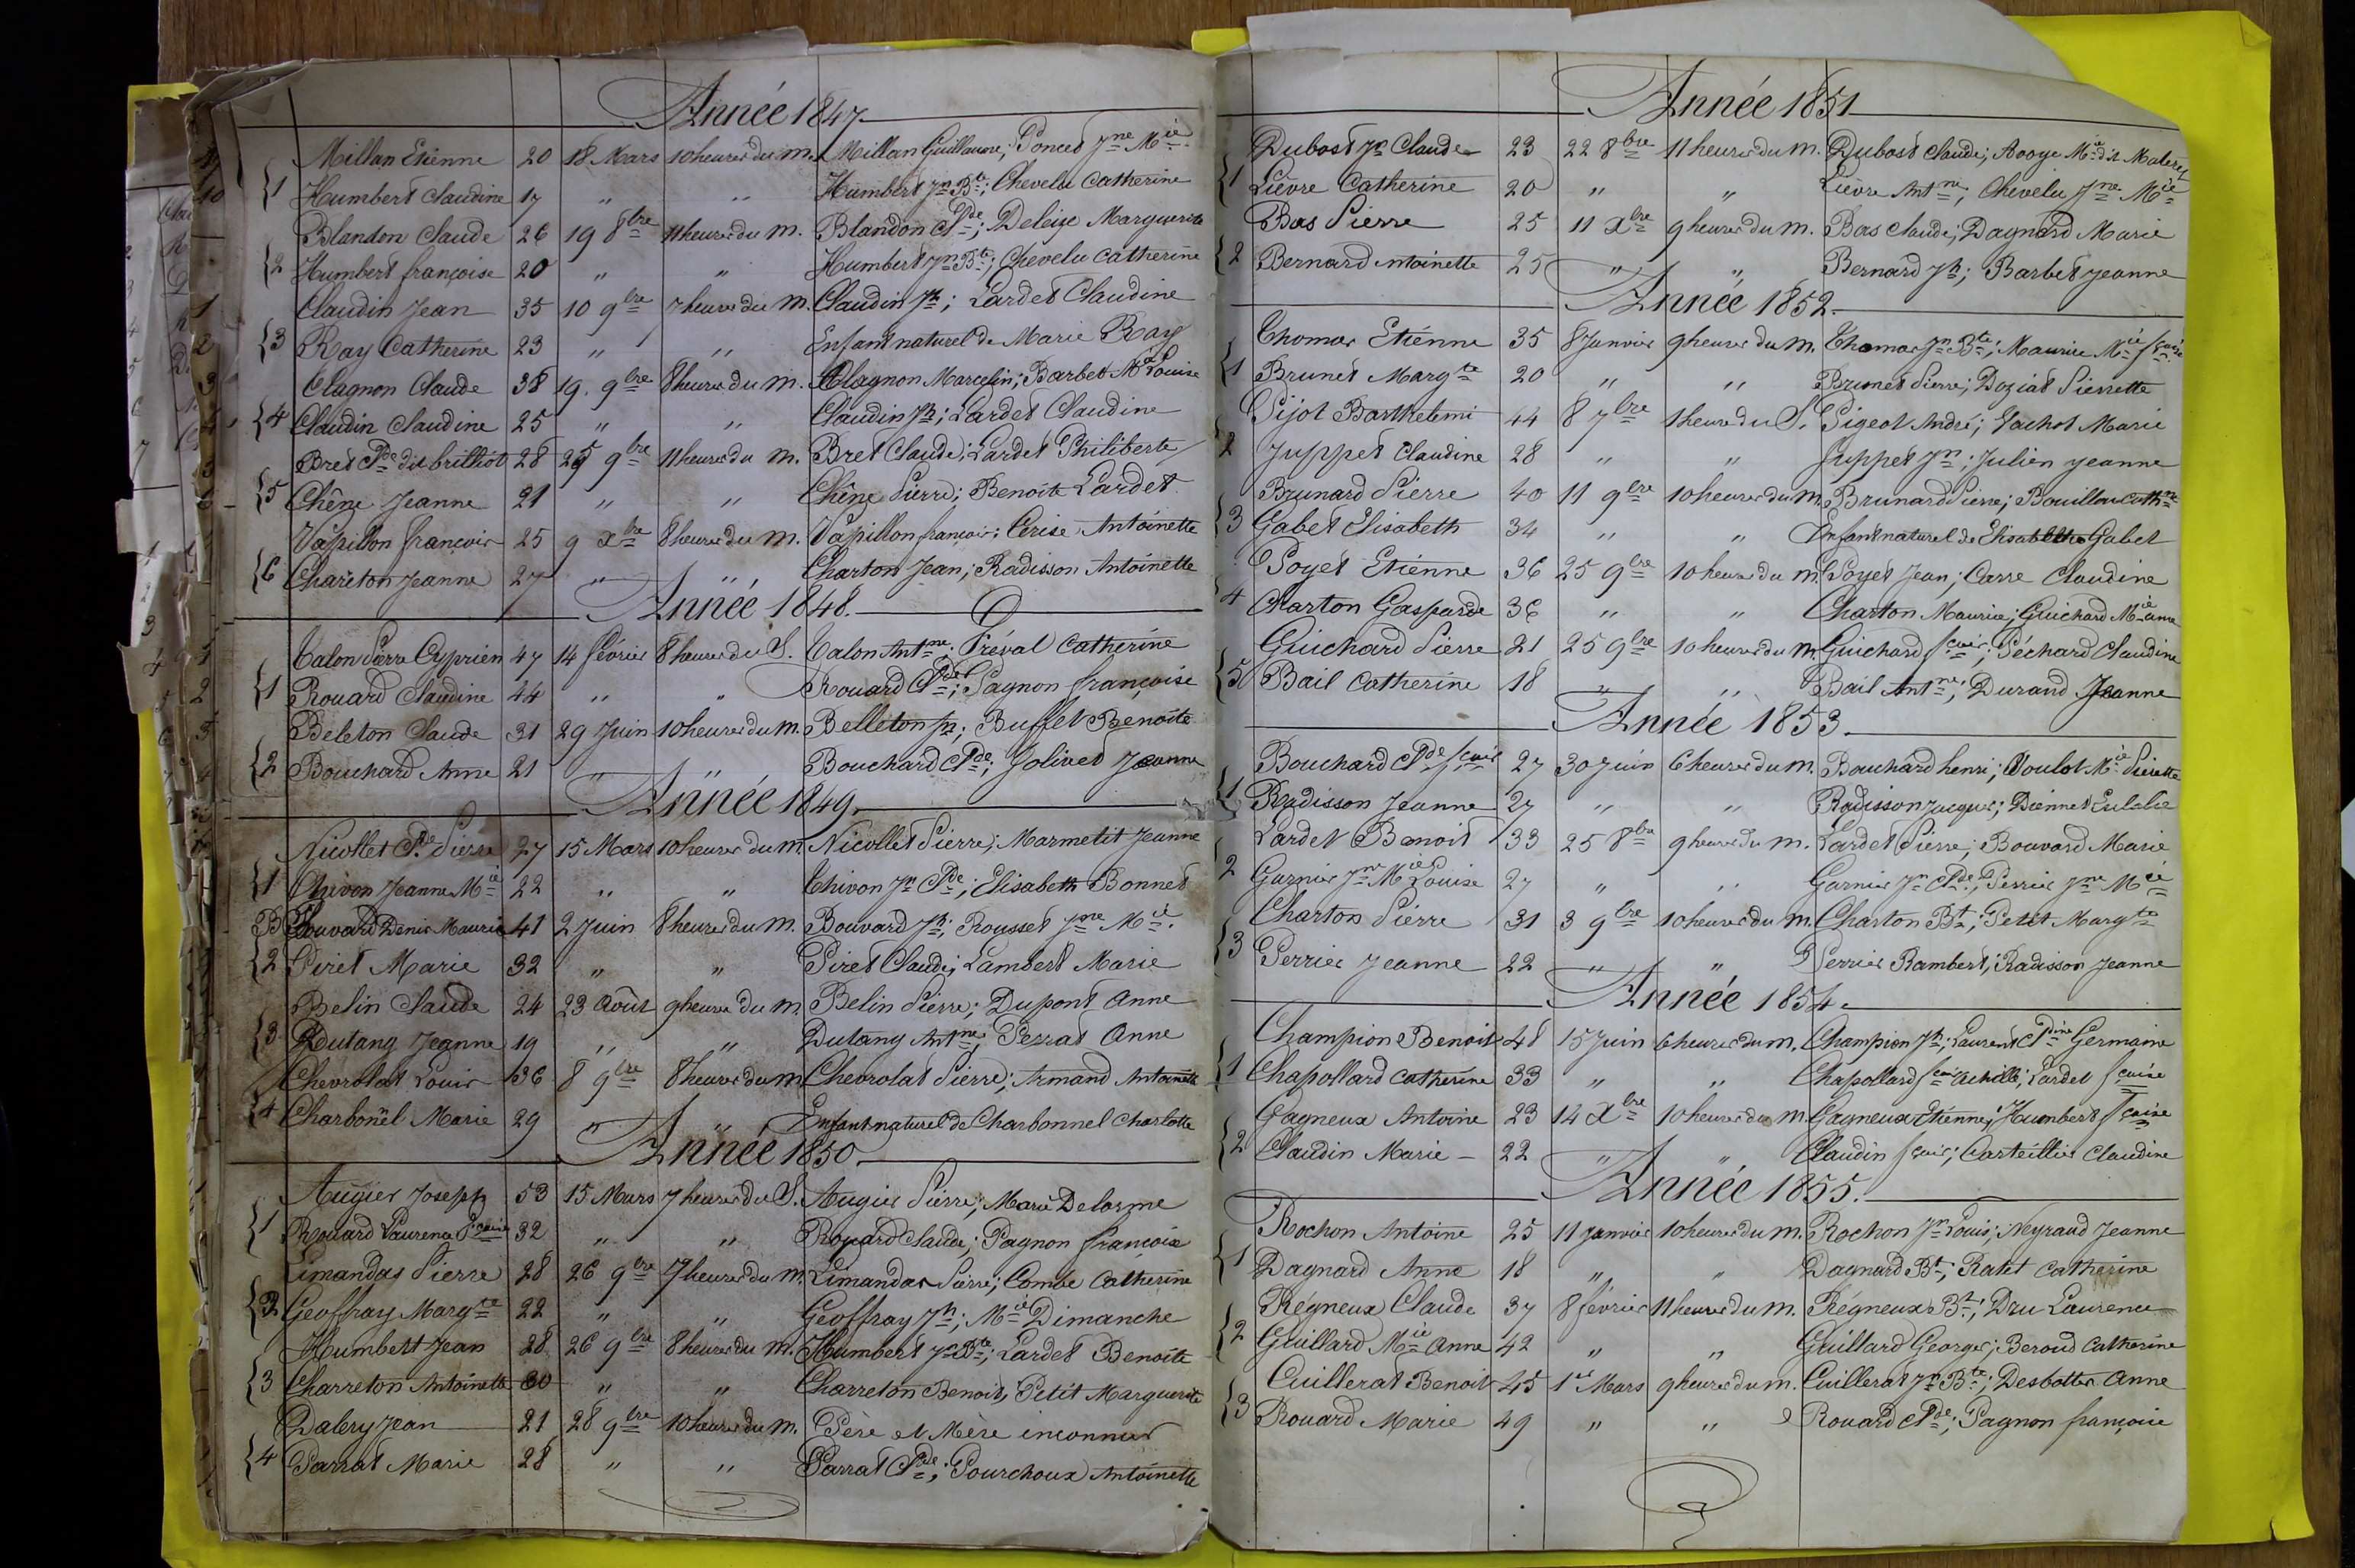 Année 1847
Millan Etienne 20 18 Mars 10 heures du m. Millan Guillaume; Poncet Jne Mie
{1 Humbert Claudine 17 " " Humbert Jn Bte; Chevelu Catherine
Blandon Claude 26 19 8bre 11 heures du m. Blandon Cde; Deleize Marguerite
{2 Humbert françoise 20 " " Humbert Jn Bte; Chevelu Catherine
Claudin Jean 35 10 9bre 7 heures du m. Claudin Jh; Lardet Claudine
{3 Ray Catherine 23 " " Enfant naturel de Marie Ray
Clagnon Claude 38 19. 9bre 8 heures du m. Clagnon Marcelin; Barbet Mie Louise
{4 Claudin Claudine 25 " " Claudin Jh; Lardet Claudine
Bret Cde dit brilliot 28 25 9bre 11 heures du m. Bret Claude; Lardet Philiberte
{5 Chêne Jeanne 21 " " Chêne Pierre; Benoîte Lardet
Vapillon françois 25 9 Xbre 8 heures du m. Vapillon françois; Cerise Antoinette
{6 Chareton Jeanne 27 " " Charton Jean; Radisson Antoinette
Année 1848.
Talon Pierre Cyprien 47 14 février 8 heures du S. Talon Antne; Préval Catherine
{1 Rouard Claudine 44 " " Rouard Cde; Pagnon françoise
Beleton Claude 31 29 Juin 10 heures du m. Belleton Jh; Buffet Benoîte
{2 Bouchard Anne 21 " " Bouchard Cde; Jolivet Jeanne
Année 1849.
Nicollet Cde Pierre 27 15 Mars 10 heures du m. Nicollet Pierre; Marmetit Jeanne
{1 Thivon Jeanne Mie 22 " " Thivon Jn Cde; Elisabeth Bonnet
Bouvard Denis Maurice 41 2 Juin 8 heures du m. Bouvard Jh; Rousset Jne Mie.
{2 Piret Marie 32 " " Piret Claude; Lambert Marie
Belin Claude 24 23 Août 9 heures du m. Belin Pierre; Dupont Anne
{3 Dutang Jeanne 19 " " Dutang Antne; Perrat Anne
Chevrolat Louis 36 8 9bre 8 heures du m. Chevrolat Pierre; Armand Antoinette
{4 Charbonël Marie 29 " " Enfant naturel de Charbonnel Charlotte
Année 1850
Augier Joseph 53 15 Mars 7 heures du S. Augier Pierre; Marie Delorme
{1 Rouard Laurence fçoise 32 " " Rouard Claude; Pagnon françoise
Limandas Pierre 28 26 9bre 7 heures du m. Limandas Pierre; Combe Catherine
{2 Geoffray Margte 22 " " Geoffray Jh; Mie Dimanche
Humbert Jean 28 26 9bre 8 heures du m. Humbert Jn Bte; Lardet Benoîte
{3 Charreton Antoinette 30 " " Charreton Benoit; Petit Marguerite
Dalery Jean 21 28 9bre 10 heures du m. Père et Mère inconnus
{4 Parrat Marie 28 " " Parrat Cde; Pourchoux Antoinette
Année 1851
Dubost Jn Claude 23 22 8bre 11 heures du m. Dubost Claude; Mie dit
{1 Lièvre Catherine 20 " " Lièvre Antne; Chevelu Jne Mie
Bas Pierre 25 11 Xbre 9 heures du m. Bas Claude; Dagnard Marie
{2 Bernard Antoinette 25 " " Bernard Jh; Barbet Jeanne
Année 1852.
Thomas Etienne 35 8 Janvier 9 heures du m. Thomas Jn Bte; Maurice Mie fçoise
{1 Brunet Margte 20 " " Brunet Pierre; Doziat Pierrette
Pijot Barthelemi 44 8 7bre 1 heure du S. Pigeot André; Vachot Marie
{2 Juppet Claudine 28 " " Juppet Jn; Julien Jeanne
Brunard Pierre 40 11 9bre 10 heures du m. Brunard Pierre; Bouilloux Cathne
{3 Gabet Elisabeth 34 " " Enfant naturel de Elisabeth Gabet
Poyet Etienne 36 25 9bre 10 heures du m. Poyet Jean; Carre Claudine
{4 Charton Gasparde 36 " " Charton Maurice; Guichard Mie anne
Guichard Pierre 21 25 9bre 10 heures du m. Guichard fçois; Péchard Claudine
{5 Bail Catherine 18 " " Bail Antne; Durand Jeanne
Année 1853
Bouchard Cde fçois 27 30 Juin 6 heures du m. Bouchard henri; Doulot Mie Pierrette
{1 Radisson Jeanne 27 " " Radisson Jacques; Diennet Eulalie
Lardet Benoit 33 25 8bre 9 heures du m. Lardet Pierre; Bouvard Marie
{2 Garnier Jne Mie Louise 27 " " Garnier Jn Cde; Perrier Jne Mie
Charton Pierre 31 3 9bre 10 heures du m. Charton Bt; Petit Margte
{3 Perrier Jeanne 22 " " Perrier Rambert; Radisson Jeanne
Année 1854.
Champion Benoit 48 15 Juin 6 heures du m. Champion Jh; Laurent Cdine Germaine
{1 Chapollard Catherine 33 " " Chapollard fçois Achille; Lardet fçoise
Gagneux Antoine 23 14 Xbre 10 heures du m. Gagneux Etienne; Humbert fçoise
{2 Claudin Marie 22 " " Claudin fçois; Carteillier Claudine
Année 1855.
Rochon Antoine 25 11 Janvier 10 heures du m. Rochon Jn Louis; Neyraud Jeanne
{1 Dagnard Anne 18 " " Dagnard Bt; Ratet Catherine
Régneux Claude 37 8 février 11 heures du m. Régneux Bt; Dru Laurence
{2 Guillard Mie Anne 42 " " Guillard Georges; Beroud Catherine
Cuillerat Benoit 45 1er Mars 9 heures du m. Cuillerat Jn Bte; Desbottes Anne
{3 Rouard Marie 49 " " Rouard Cde; Pagnon françoise